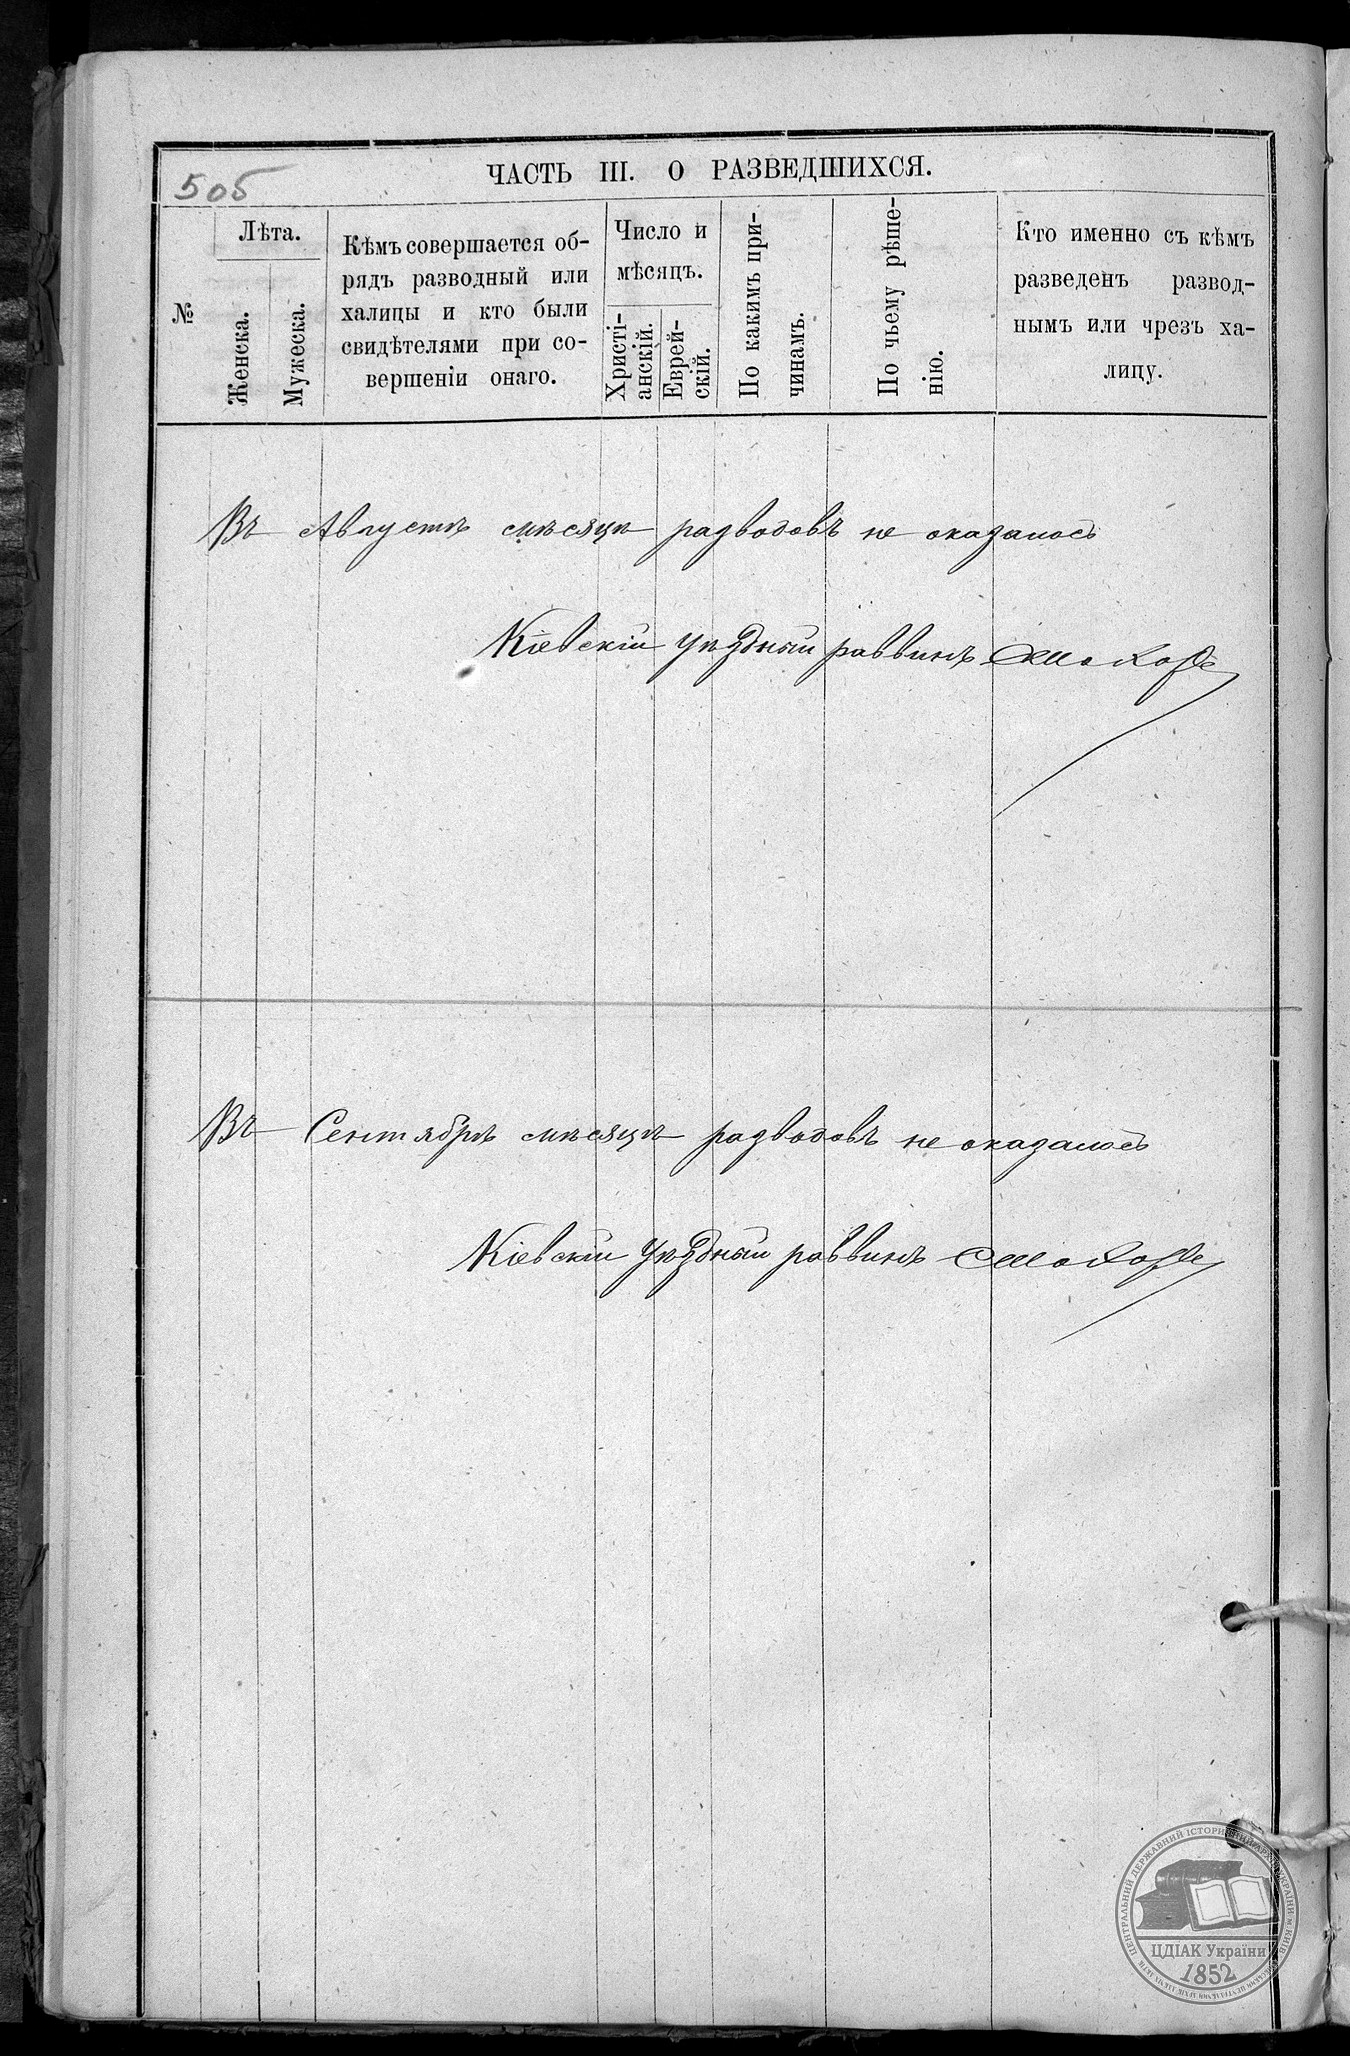 505
ЧАСТЬ III. О РАЗВЕДШИХСЯ.
№
Лѣта.
Женска.
Мужеска.
Кѣмъ совершается об-
рядъ разводный или
халицы и кто были
свидѣтелями при со-
вершеніи онаго.
Число и
мѣсяцъ.
Христі-
анскій.
Еврей-
скій.
По какимъ при-
чинамъ.
По чьему рѣше-
нію.
Кто именно съ кѣмъ
разведенъ развод-
нымъ или чрезъ ха-
лицу.
Въ Августѣ мѣсяцѣ разводовъ не оказалось
Кіевскій уѣздный раввинъ
Въ Сентябрѣ мѣсяцѣ разводовъ не оказалось
Кіевскій уѣздный раввинъ
ЦДІАК України
1852